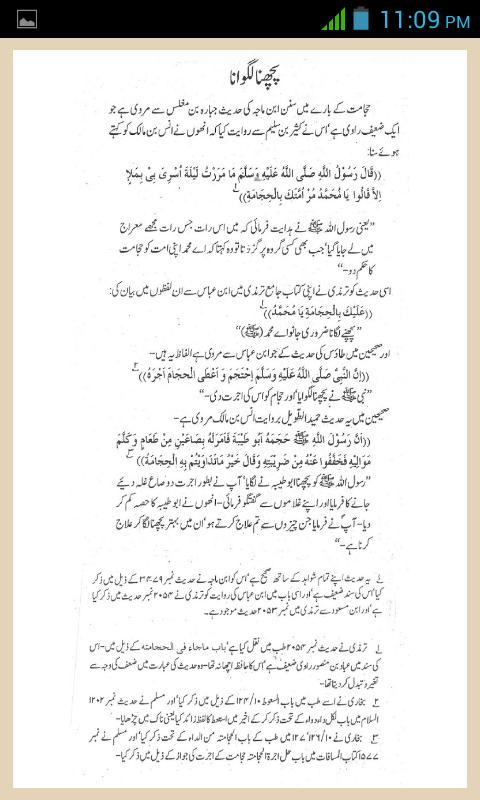 11:09 PM
پچھنا لگوانا
حجامت کے بارے میں سنن ابن ماجہ کی حدیث جبارہ بن مغلس سے مروی ہے جو
ایک ضعیف راوی ہے' اس نے کثیر بن سلیم سے روایت کیا کہ انھوں نے انس بن مالک کو کہتے
ہوئے سنا:
((قَالَ رَسُوْلُ اللَّهِ صَلَّى اللَّهُ عَلَيْهِ وَسَلَّمَ مَا مَرَرْتُ لَيْلَةَ اُسْرِىَ بِىْ بِمَلَإٍ
اِلَّا قَالُوْا يَا مُحَمَّدُ مُرْ اُمَّتَكَ بِالْحِجَامَةِ))
''یعنی رسول اللہ ﷺ نے ہدایت فرمائی کہ میں اس رات جس رات مجھے معراج
میں لے جایا گیا' جب بھی کسی گروہ پر گزرتا تو وہ کہتا کہ اے محمد اپنی امت کو حجامت
کا حکم دو-''
اسی حدیث کو ترمذی نے اپنی کتاب جامع ترمذی میں ابن عباس سے ان لفظوں میں بیان کی:
((عَلَيْكَ بِالْحِجَامَةِ يَا مُحَمَّدُ))
''پچھنے لگانا ضروری جانو اے محمد (ﷺ)''
اور صحیحین میں طاؤس کی حدیث کے جو ابن عباس سے مروی ہے الفاظ یہ ہیں-
((اِنَّ النَّبِىَّ صَلَّى اللَّهُ عَلَيْهِ وَسَلَّمَ اِحْتَجَمَ وَ اَعْطَى الْحَجَّامَ اَجْرَهُ))
''نبی ﷺ نے پچھنا لگوایا' اور حجام کو اس کی اجرت دی-''
صحیحین میں یہ حدیث حمید الطویل بروایت انس بن مالک مروی ہے-
((اَنَّ رَسُوْلَ اللَّهِ ﷺ حَجَمَهُ اَبُو طَيْبَةَ فَاَمَرَلَهُ بِصَاعَيْنِ مِنْ طَعَامٍ وَ كَلَّمَ
مَوَالِيْهِ فَخَفَّفُوا عَنْهُ مِنْ ضَرِيْبَتِهِ وَ قَالَ خَيْرُ مَاتَدَاوَيْتُمْ بِهِ الْحِجَامَةُ))
''رسول اللہ ﷺ کو پچھنا ابو طیبہ نے لگایا' آپ نے بطور اجرت دو صاع غلہ دیئے
جانے کا فرمایا اور اپنے غلاموں سے گفتگو فرمائی- انھوں نے ابو طیبہ کا حصہ کم کر
دیا- آپ نے فرمایا جن چیزوں سے تم علاج کرتے ہو' ان میں بہتر پچھنا لگا کر علاج
کرنا ہے-''
یہ حدیث اپنے تمام شواہد کے ساتھ صحیح ہے' اس کو ابن ماجہ نے حدیث نمبر ۳۴۷۹ کے ذیل میں ذکر
کیا' اس کی سند ضعیف ہے' اور اسی باب میں ابن عباس کی روایت کو ترمذی نے ۲۰۵۴ نمبر حدیث میں ذکر کیا
ہے' اور ابن مسعود سے ترمذی میں نمبر ۲۰۵۳ حدیث موجود ہے-
ترمذی نے حدیث نمبر ۲۰۵۴ طب میں نقل کیا ہے' باب ماجاء فی الحجامته کے ذیل میں- اس
کی سند میں عباد بن منصور راوی ضعیف ہے' اس کا حافظہ اچھا نہ تھا- وہ حدیث کی عبارت میں ضعف کی وجہ سے
تغیر و تبدل کر دیتا تھا-
۲ بخاری نے اسے طب میں باب السعوط ۱۰/۱۲۴ کے ذیل میں ذکر کیا' اور مسلم نے حدیث نمبر ۱۲۰۲
السلام میں باب لکل داء دواء کے تحت ذکر کر کے اخیر میں استعط کا لفظ زائد کیا یعنی ناک میں چڑھایا-
۳ بخاری نے ۱۰/۱۲۶' ۱۲۷ میں طب کے باب الحجامتہ من الداء کے تحت ذکر کیا' اور مسلم نے نمبر
۱۵۷۷ کتاب المساقات میں باب حل اجرة الحجامتہ حجامت کے اجرت کی جواز کے ذیل میں ذکر کیا-